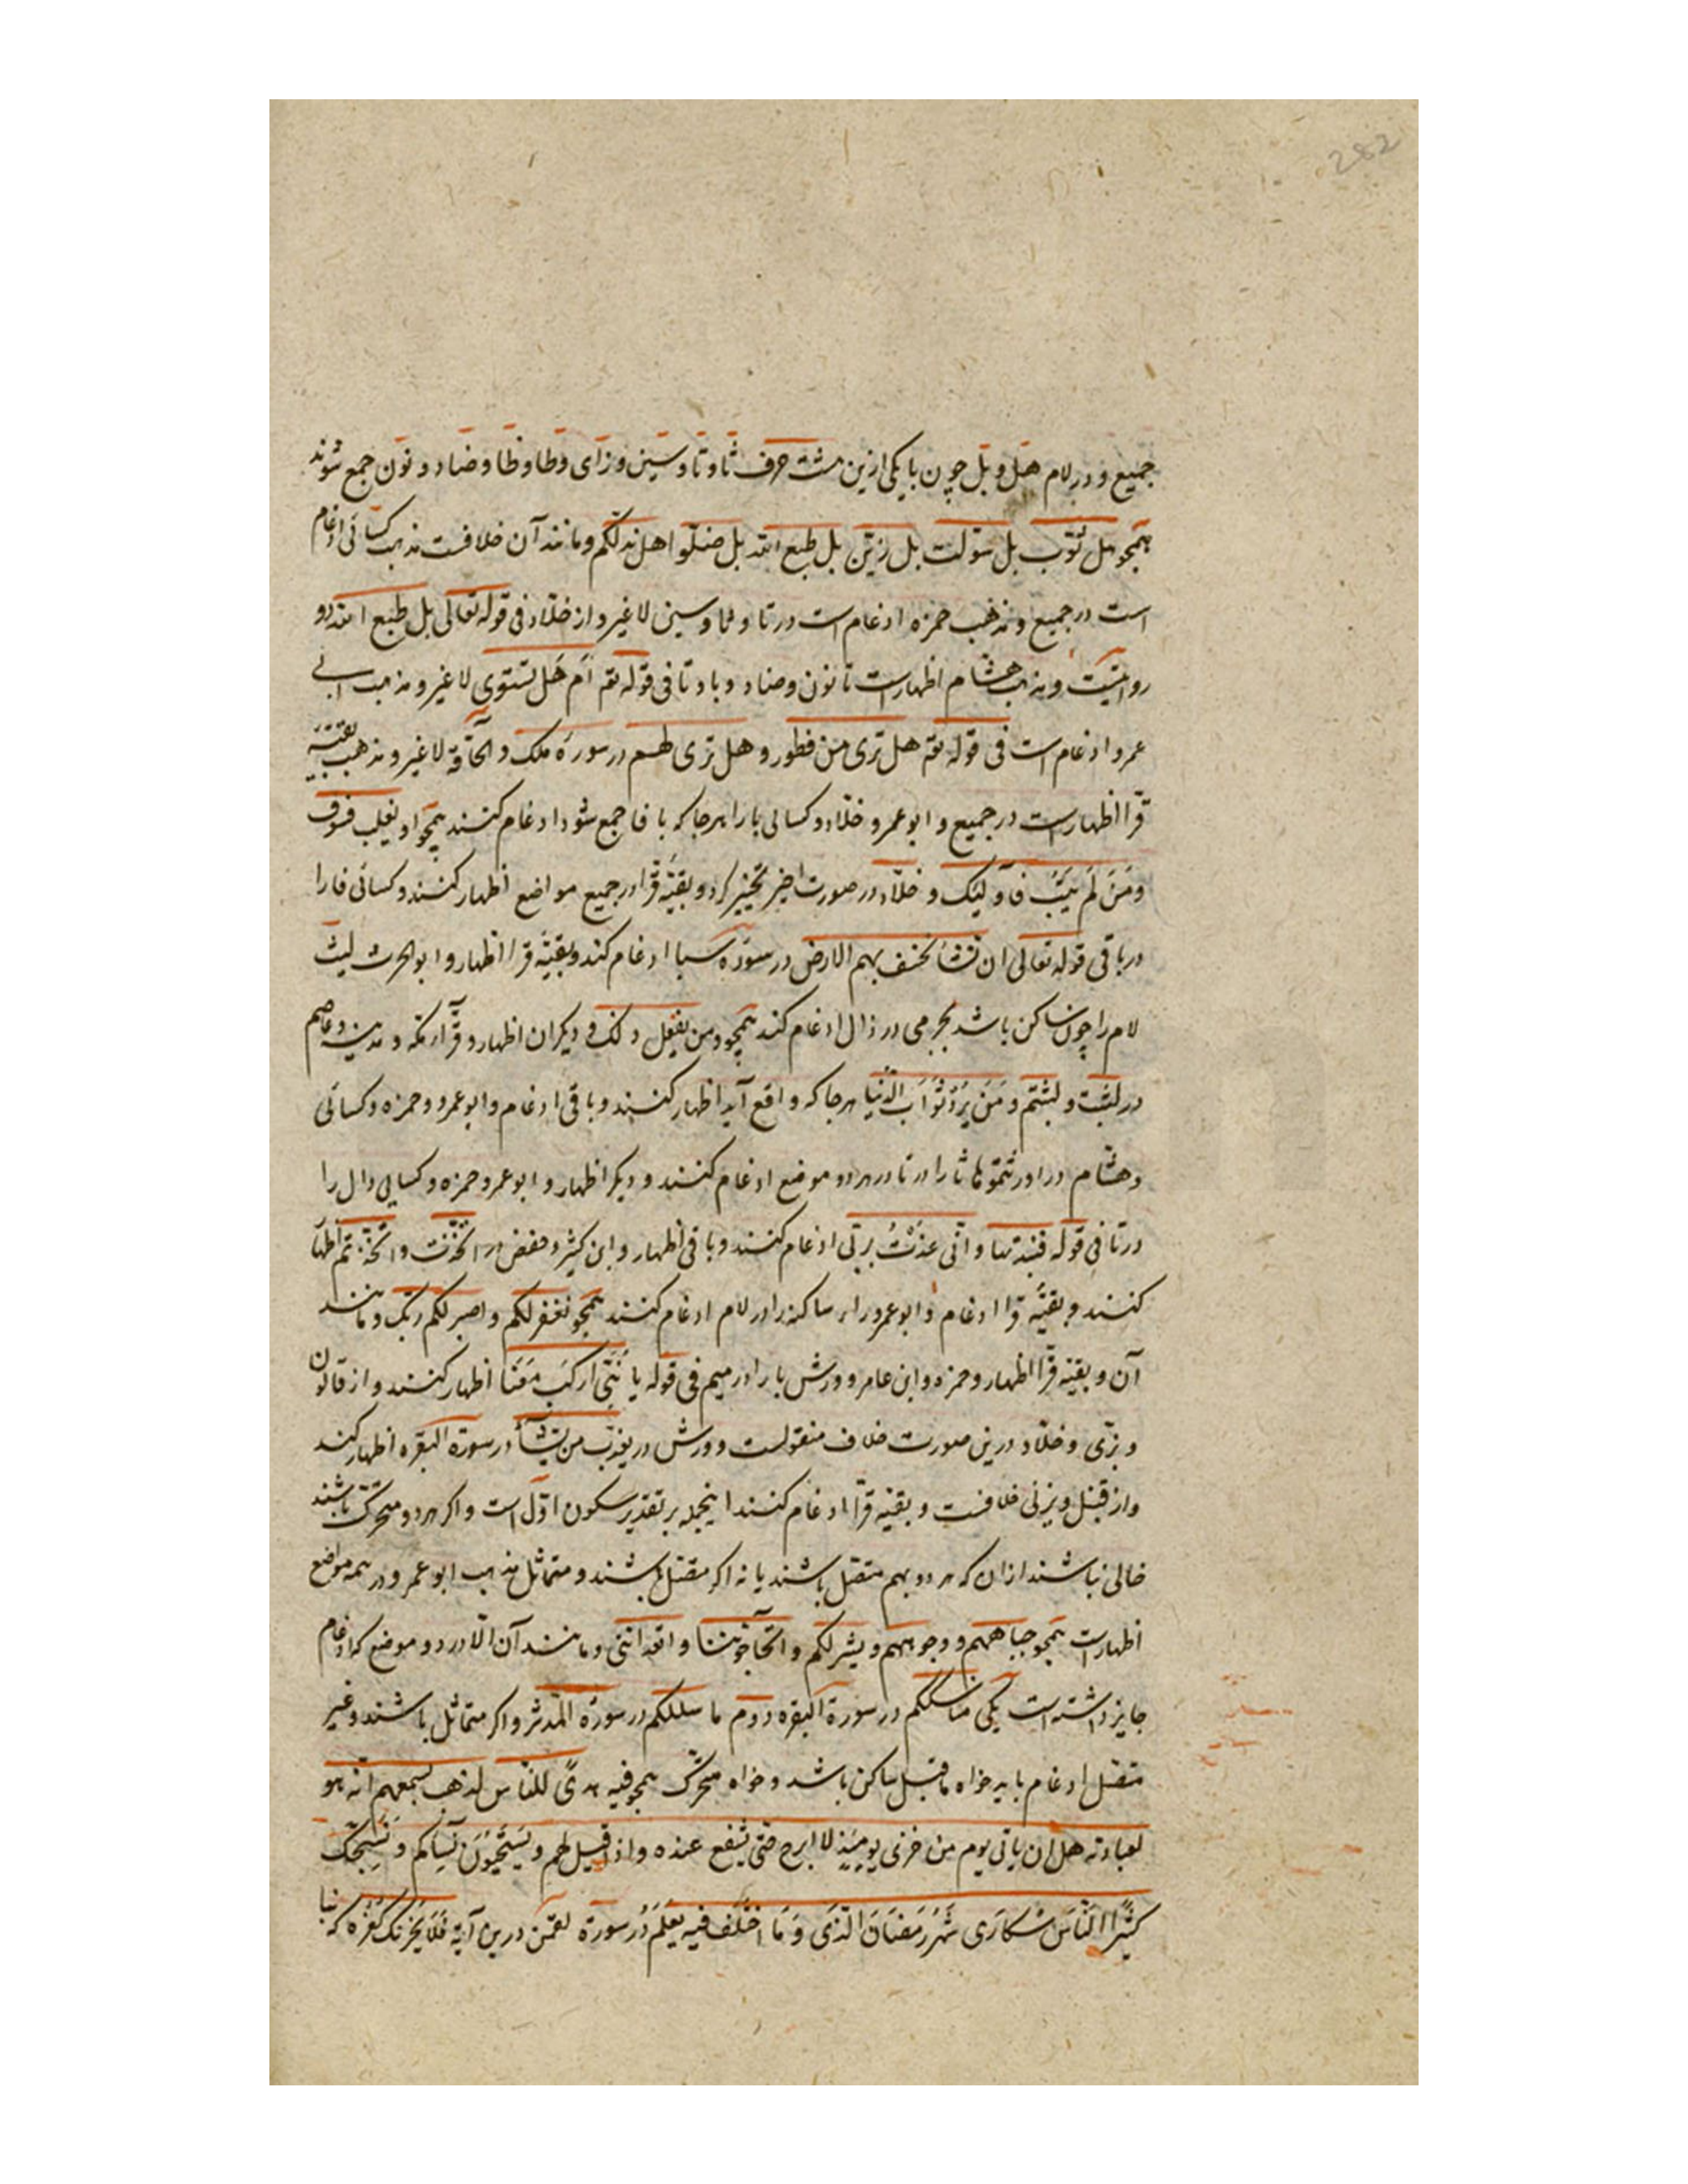 282
جمیع و در لام هل و بل چون با یکی ازین هشت حرف ثا و تا و سین و زای و طا و ظا و ضاد و نون جمع شوند
همچو هل ثوب بل سولت بل زین بل طبع الله بل ضلوا هل ندلکم و مانند آن خلافست مذهب کسائی ادغام
است در جمیع و مذهب حمزه ادغام است در تا و ثا و سین لاغیر و از خلاد فی قوله تعالی بل طبع الله دو
روایتست و مذهب هشام اظهار است تا نون و ضاد و با و تا فی قوله تع ام هل تستوی لاغیر و مذهب ابی
عمرو ادغام است فی قوله تع هل تری من فطور و هل تری لهم در سوره ملک و الحاقة لاغیر و مذهب بقیه
قرا اظهار است در جمیع و ابو عمرو و خلاد و کسائی با را هر جا که با فا جمع شود ادغام کنند همچو او یغلب فسوف
وَمَنْ لَمْ یَتُبْ فَأُولئِکَ و خلاد در صورت اخیر تخییر کرد و بقیه قرا در جمیع مواضع اظهار کنند و کسائی فا را
در با فی قوله تعالی ان نشأ نخسف بهم الارض در سوره سبا ادغام کند و بقیه قرا اظهار و ابو الحرث لیث
لام را چون ساکن باشد بجزمی در ذال ادغام کند همچو و من یفعل ذلک و دیگران اظهار و قرّاء مکه و مدینه و عاصم
در لبثت و لبثتم و مَنْ یُرِدْ ثَوَابَ الدُّنْیا هر جا که واقع آید اظهار کنند و باقی ادغام و ابو عمرو و حمزه و کسائی
و هشام در اورثتموها ثا را در تا در هر دو موضع ادغام کنند و دیگر اظهار و ابو عمرو و حمزه و کسائی ذال را
در تا فی قوله فنبذتها و انی عذت بربی ادغام کنند و باقی اظهار و ابن کثیر و حفص در اتخذت و اتخذتم اظهار
کنند و بقیه قرا ادغام و ابو عمرو راء ساکنه را در لام ادغام کنند همچو نغفر لکم و اصبر لحکم ربک و مانند
آن و بقیه قرا اظهار و حمزه و ابن عامر و ورش با را در میم فی قوله یا بُنَیَّ ارکب مَعَنا اظهار کنند و از قالون
و بزی و خلاد درین صورت خلاف منقولست و ورش در یعذب من یشاء در سورة البقره اظهار کند
و از قنبل و بزی خلافست و بقیه قرا ادغام کنند اینجمله بر تقدیر سکون اول است و اگر هر دو متحرک باشند
خالی نباشند از ان که هر دو بهم متصل باشند یا نه اگر متصل باشند و متماثل مذهب ابو عمرو در همه مواضع
اظهار است همچو جباههم و وجوههم و بشرککم و اتحاجوننا و اتعداننی و مانند آن الا در دو موضع که ادغام
جایز داشته است یکی مناسککم در سورة البقره دوم ما سلککم در سوره المدثر و اگر متماثل باشند و غیر
متصل ادغام باید خواه ماقبل ساکن باشد و خواه متحرک همچو فیه هدًی للناس لذهب بسمعهم انه هو
لعبادته هل ان یاتی یوم من خزی یومئذ لا ابرح حتی یشفع عنده و اذا قیل لهم و یستحیون نساکم و نسبحک
کثیرًا الناس سکاری شهر رمضان الذی وما اختلف فیه یعلم در سورة لقمن درین آیة فلا یحزنک کفره که بنا